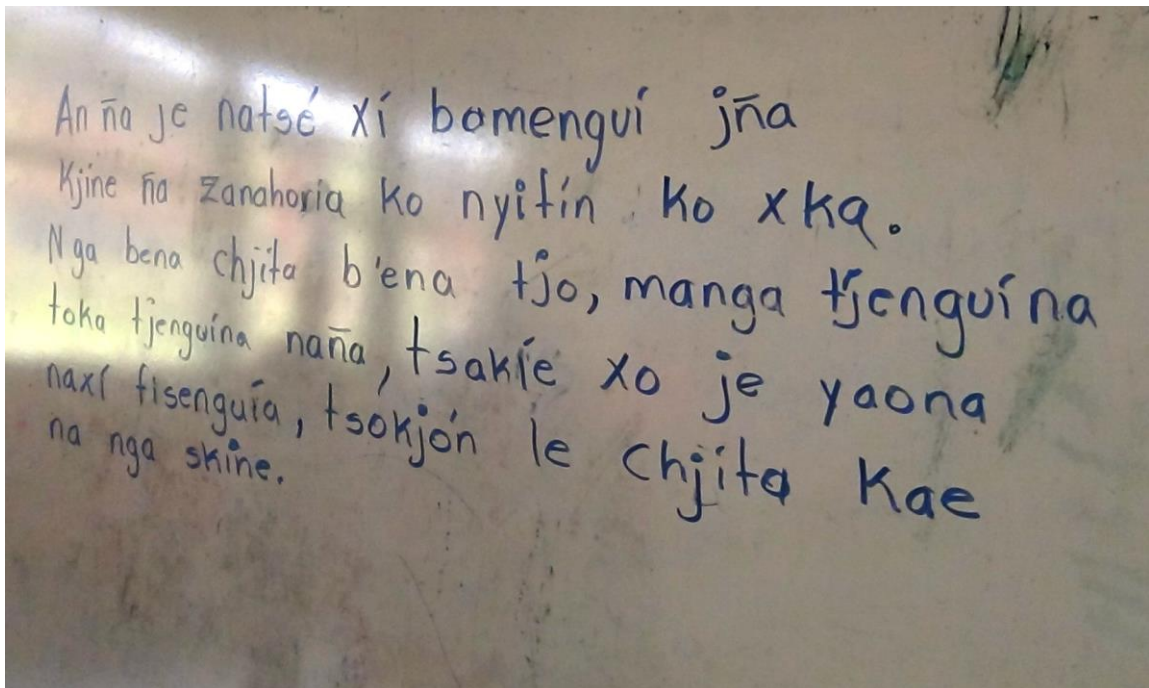 An ña je natsé xí bamenguí jña
Kjine ña zanahoria ko nyifín ko xka.
Nga bena chjita b'ena tjo, manga tjenguína
toka tjenguína naña, tsakíe xo je yaona
naxí fisenguía, tsókjón le chjita kae
na nga skine.